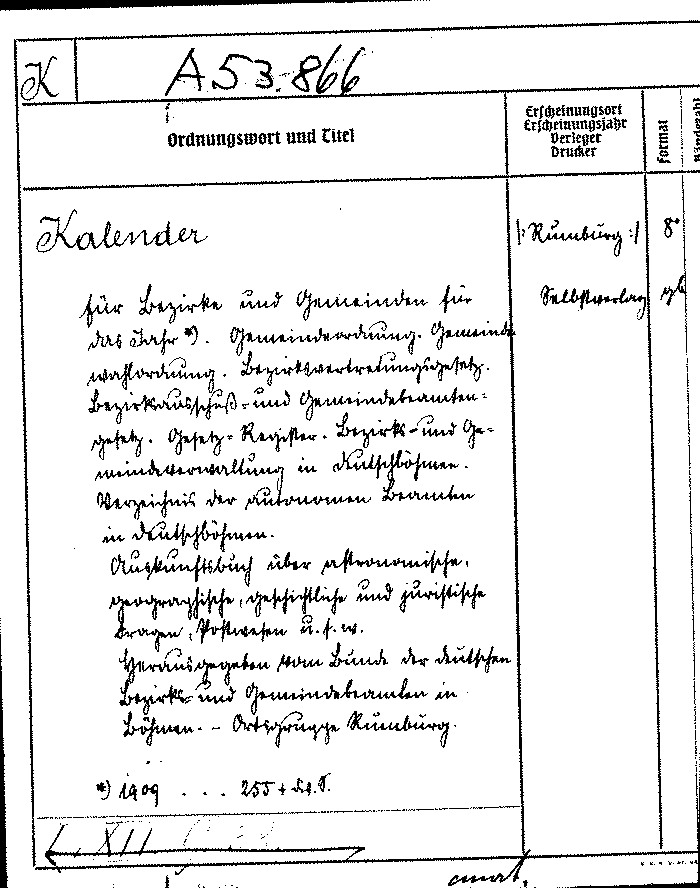 K
A 53.866
Ordnungswort und Titel
Erscheinungsort
Erscheinungsjahr
Verleger
Drucker
Format
Bändezahl
Kalender
|: Rumburg :|
8°
Selbstverlag
gb
für Bezirke und Gemeinden für
das Jahr *). Gemeindeordnung. Gemeinde
wahlordnung. Bezirksvertretungsgesetz.
Bezirksausschuß- und Gemeindebeamten-
gesetz. Gesetz-Register. Bezirks- und Ge-
meindeverwaltung in Deutschböhmen.
Verzeichnis der autonomen Beamten
in Deutschböhmen.
Auskunftsbuch über astronomische,
geographische, geschichtliche und juristische
Fragen, Postwesen u.s.w.
Herausgegeben vom Bunde der deutschen
Bezirks- und Gemeindebeamten in
Böhmen. – Ortsgruppe Rumburg.
*) 1909 . . . 255 + S.
XII